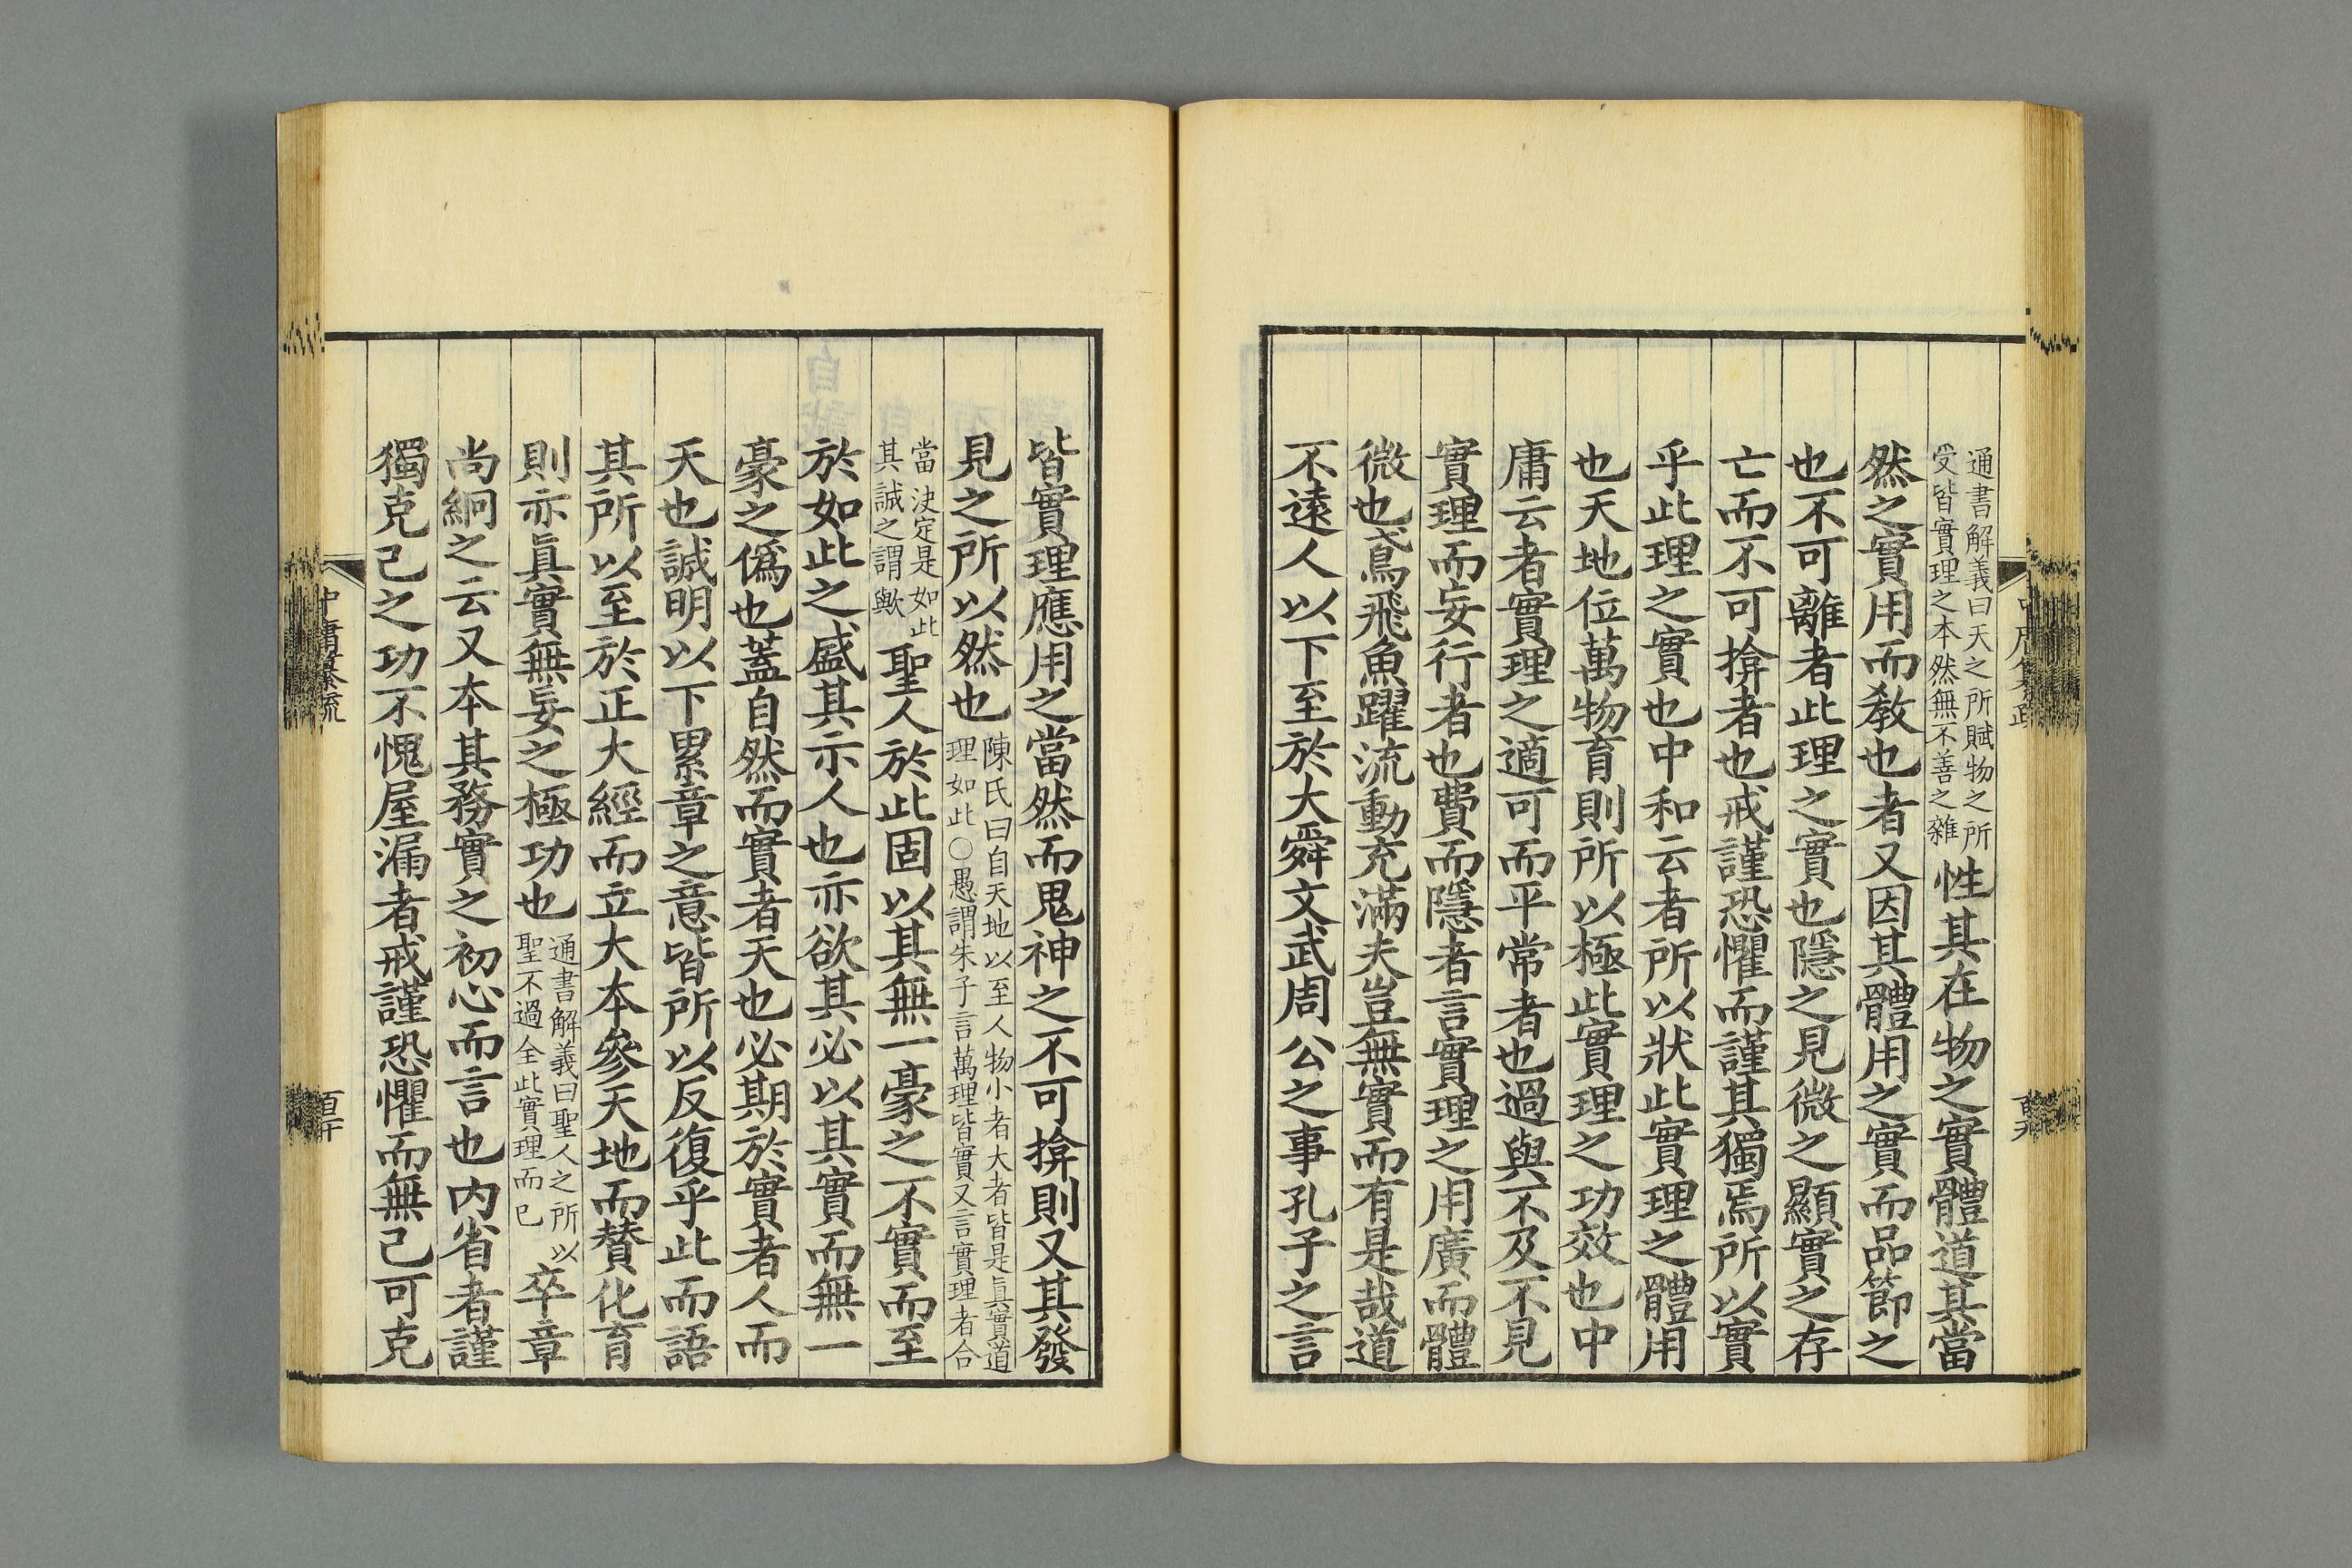 通書解義曰天之所賦物之所
受皆實理之本然無不善之雜
性其在物之實體道其當
然之實用而教也者又因其體用之實而品節之
也不可離者此理之實也隱之見微之顯實之存
亡而不可揜者也戒謹恐懼而謹其獨焉所以實
乎此理之實也中和云者所以狀此實理之體用
也天地位萬物育則所以極此實理之功效也中
庸云者實理之適可而平常者也過與不及不見
實理而妄行者也費而隱者言實理之用廣而體
微也鳶飛魚躍流動充滿夫豈無實而有是哉道
不遠人以下至於大舜文武周公之事孔子之言
皆實理應用之當然而鬼神之不可揜則又其發
見之所以然也
陳氏曰自天地以至人物小者大者皆是眞實道
理如此〇愚謂朱子言萬理皆實又言實理者合
當決定是如此
其誠之謂歟
聖人於此固以其無一毫之不實而至
於如此之盛其示人也亦欲其必以其實而無一
毫之僞也蓋自然而實者天也必期於實者人而
天也誠明以下累章之意皆所以反復乎此而語
其所以至於正大經而立大本參天地而贊化育
則亦眞實無妄之極功也
通書解義曰聖人之所以
聖不過全此實理而已
卒章
尚絅之云又本其務實之初心而言也内省者謹
獨克己之功不愧屋漏者戒謹恐懼而無己可克
中庸纂疏